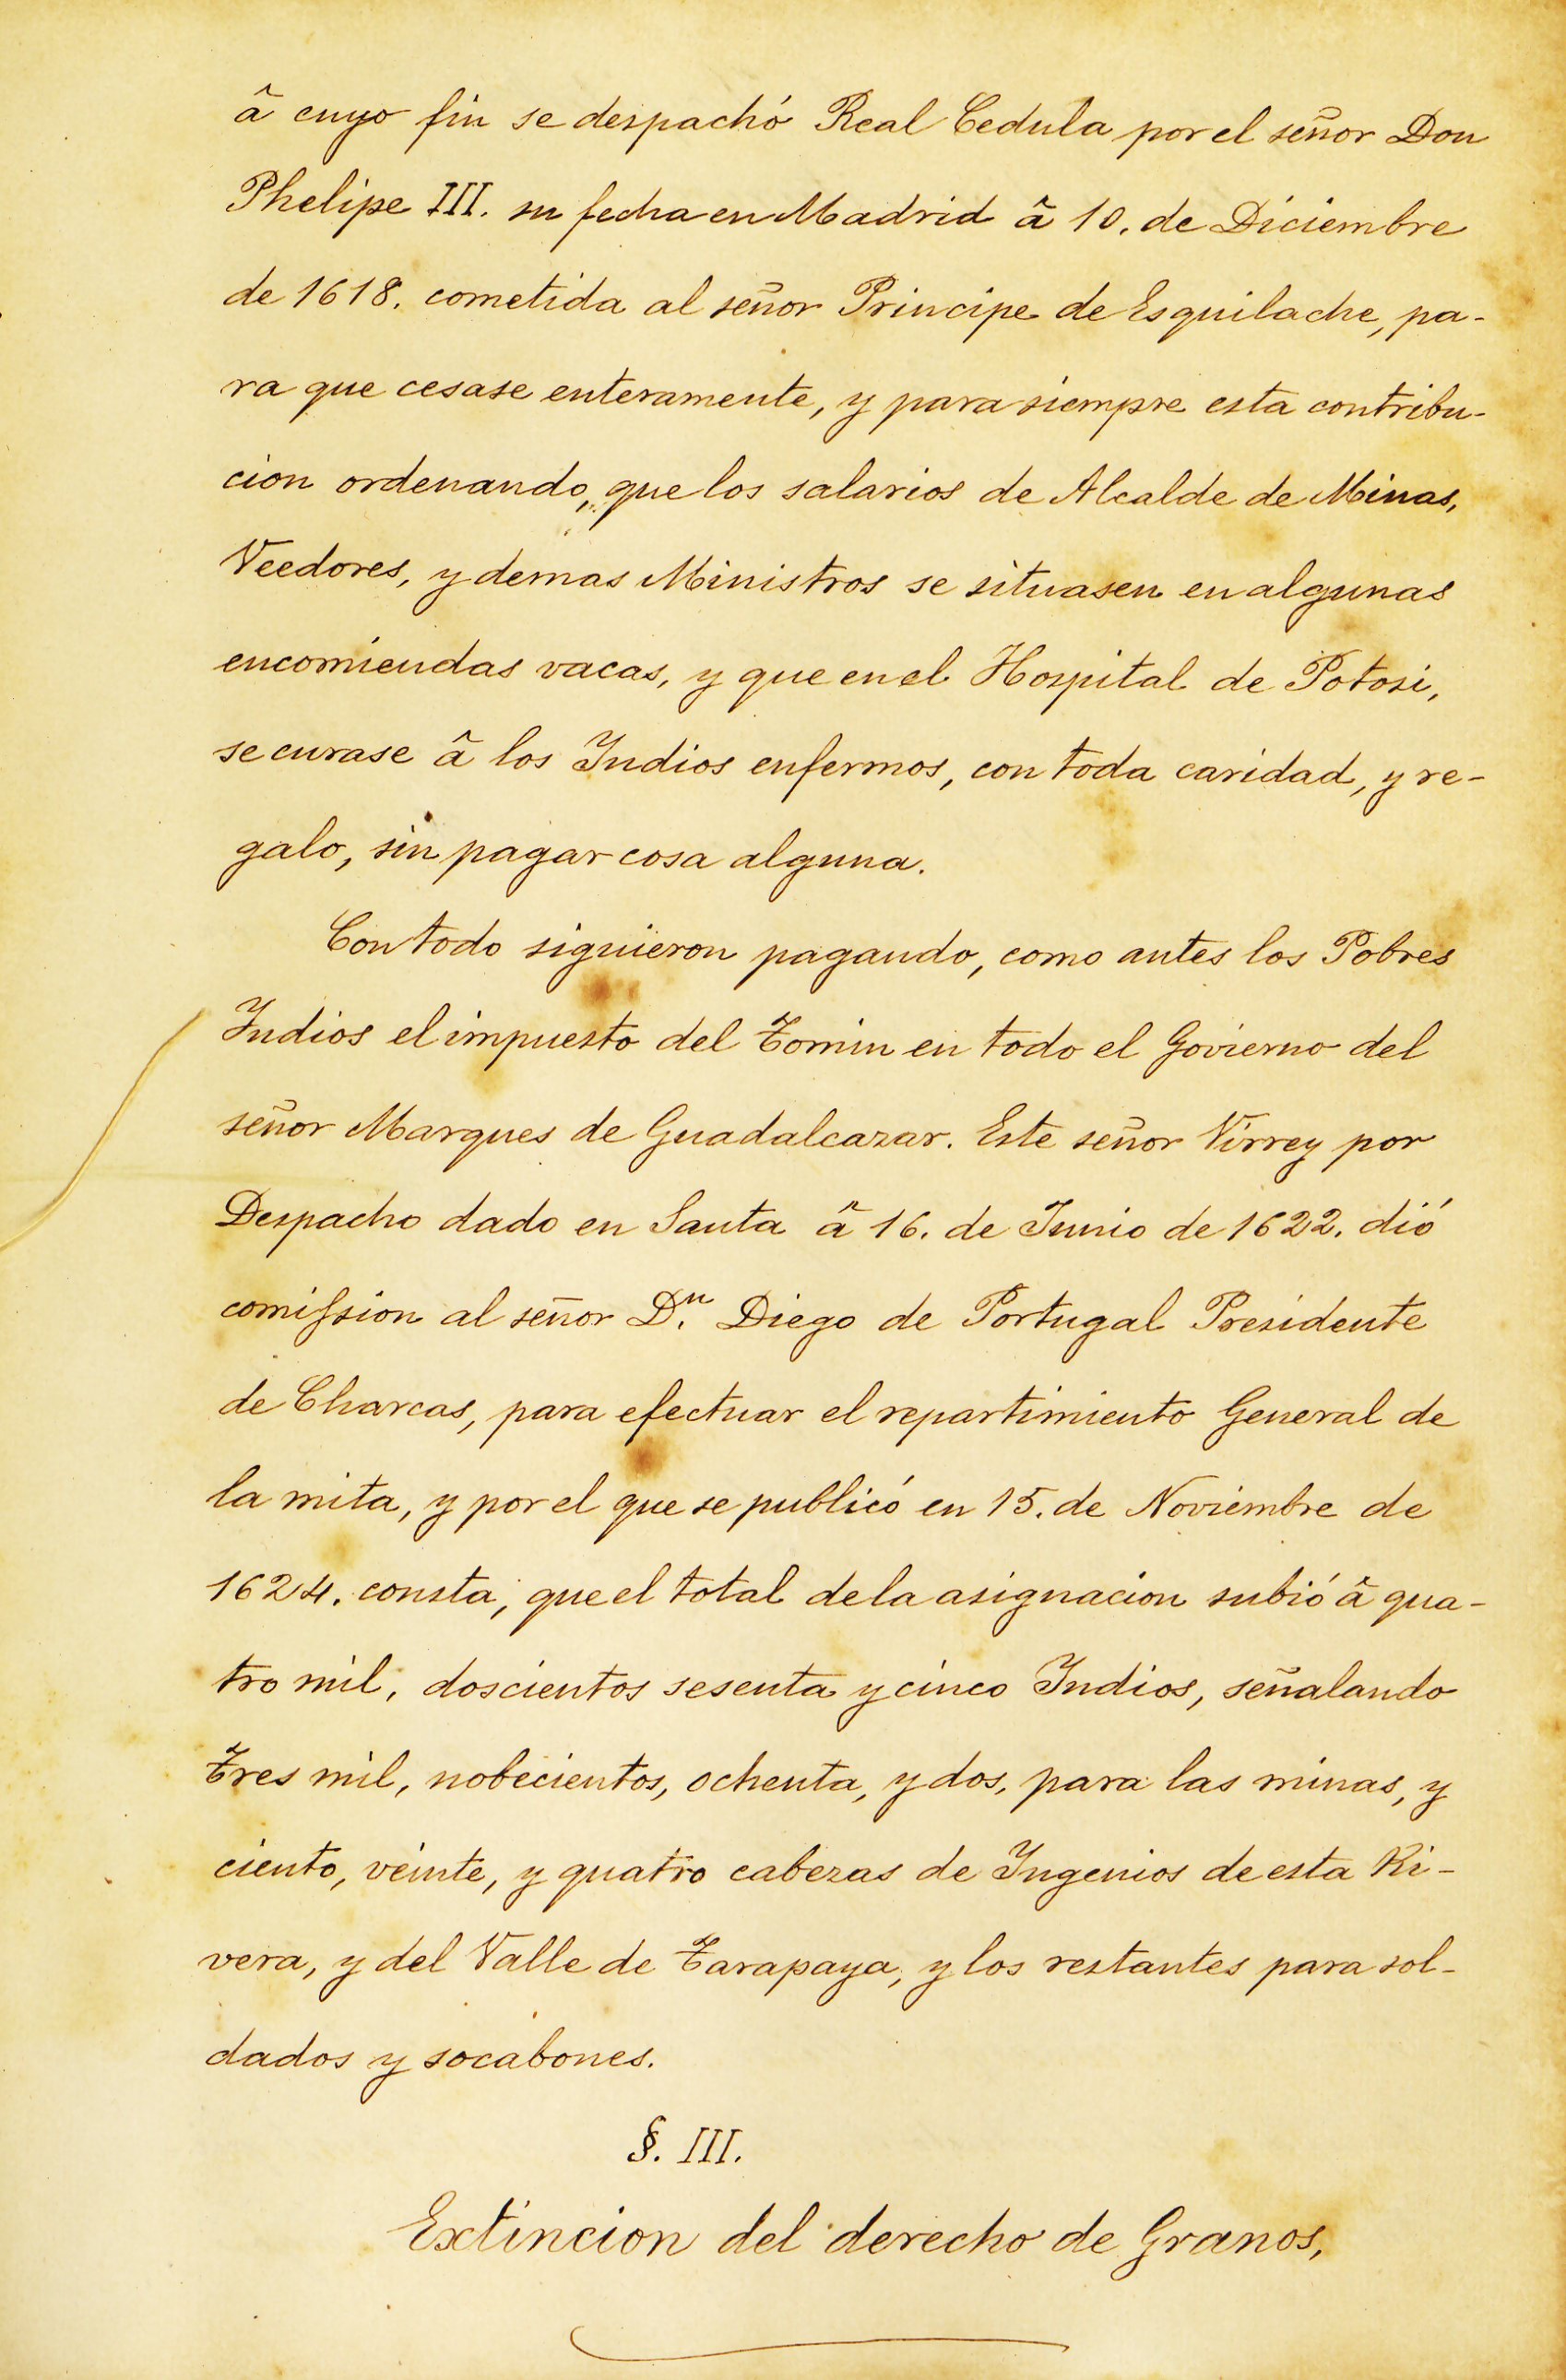 â cuyo fin se despachó Real Cedula por el señor Don
Phelipe III. su fecha en Madrid â 10. de Diciembre
de 1618. cometida al señor Principe de Esquilache, pa-
ra que cesase enteramente, y para siempre esta contribu-
cion ordenando, que los salarios de Alcalde de Minas,
Veedores, y demas Ministros se situasen en algunas
encomiendas vacas, y que en el Hospital de Potosi,
se curase â los Indios enfermos, con toda caridad, y re-
galo, sin pagar cosa alguna.
Con todo siguieron pagando, como antes los Pobres
Indios el impuesto del Tomin en todo el Govierno del
señor Marques de Guadalcazar. Este señor Virrey por
Despacho dado en Santa â 16. de Junio de 1622. dió
comiſsion al señor D.ⁿ Diego de Portugal Presidente
de Charcas, para efectuar el repartimiento General de
la mita, y por el que se publicó en 15. de Noviembre de
1624. consta, que el total de la asignacion subió â qua-
tro mil, doscientos sesenta y cinco Indios, señalando
Tres mil, nobecientos, ochenta, y dos, para las minas, y
ciento, veinte, y quatro cabezas de Ingenios de esta Ri-
vera, y del Valle de Tarapaya, y los restantes para sol-
dados y socabones.
§. III.
Extincion del derecho de Granos,